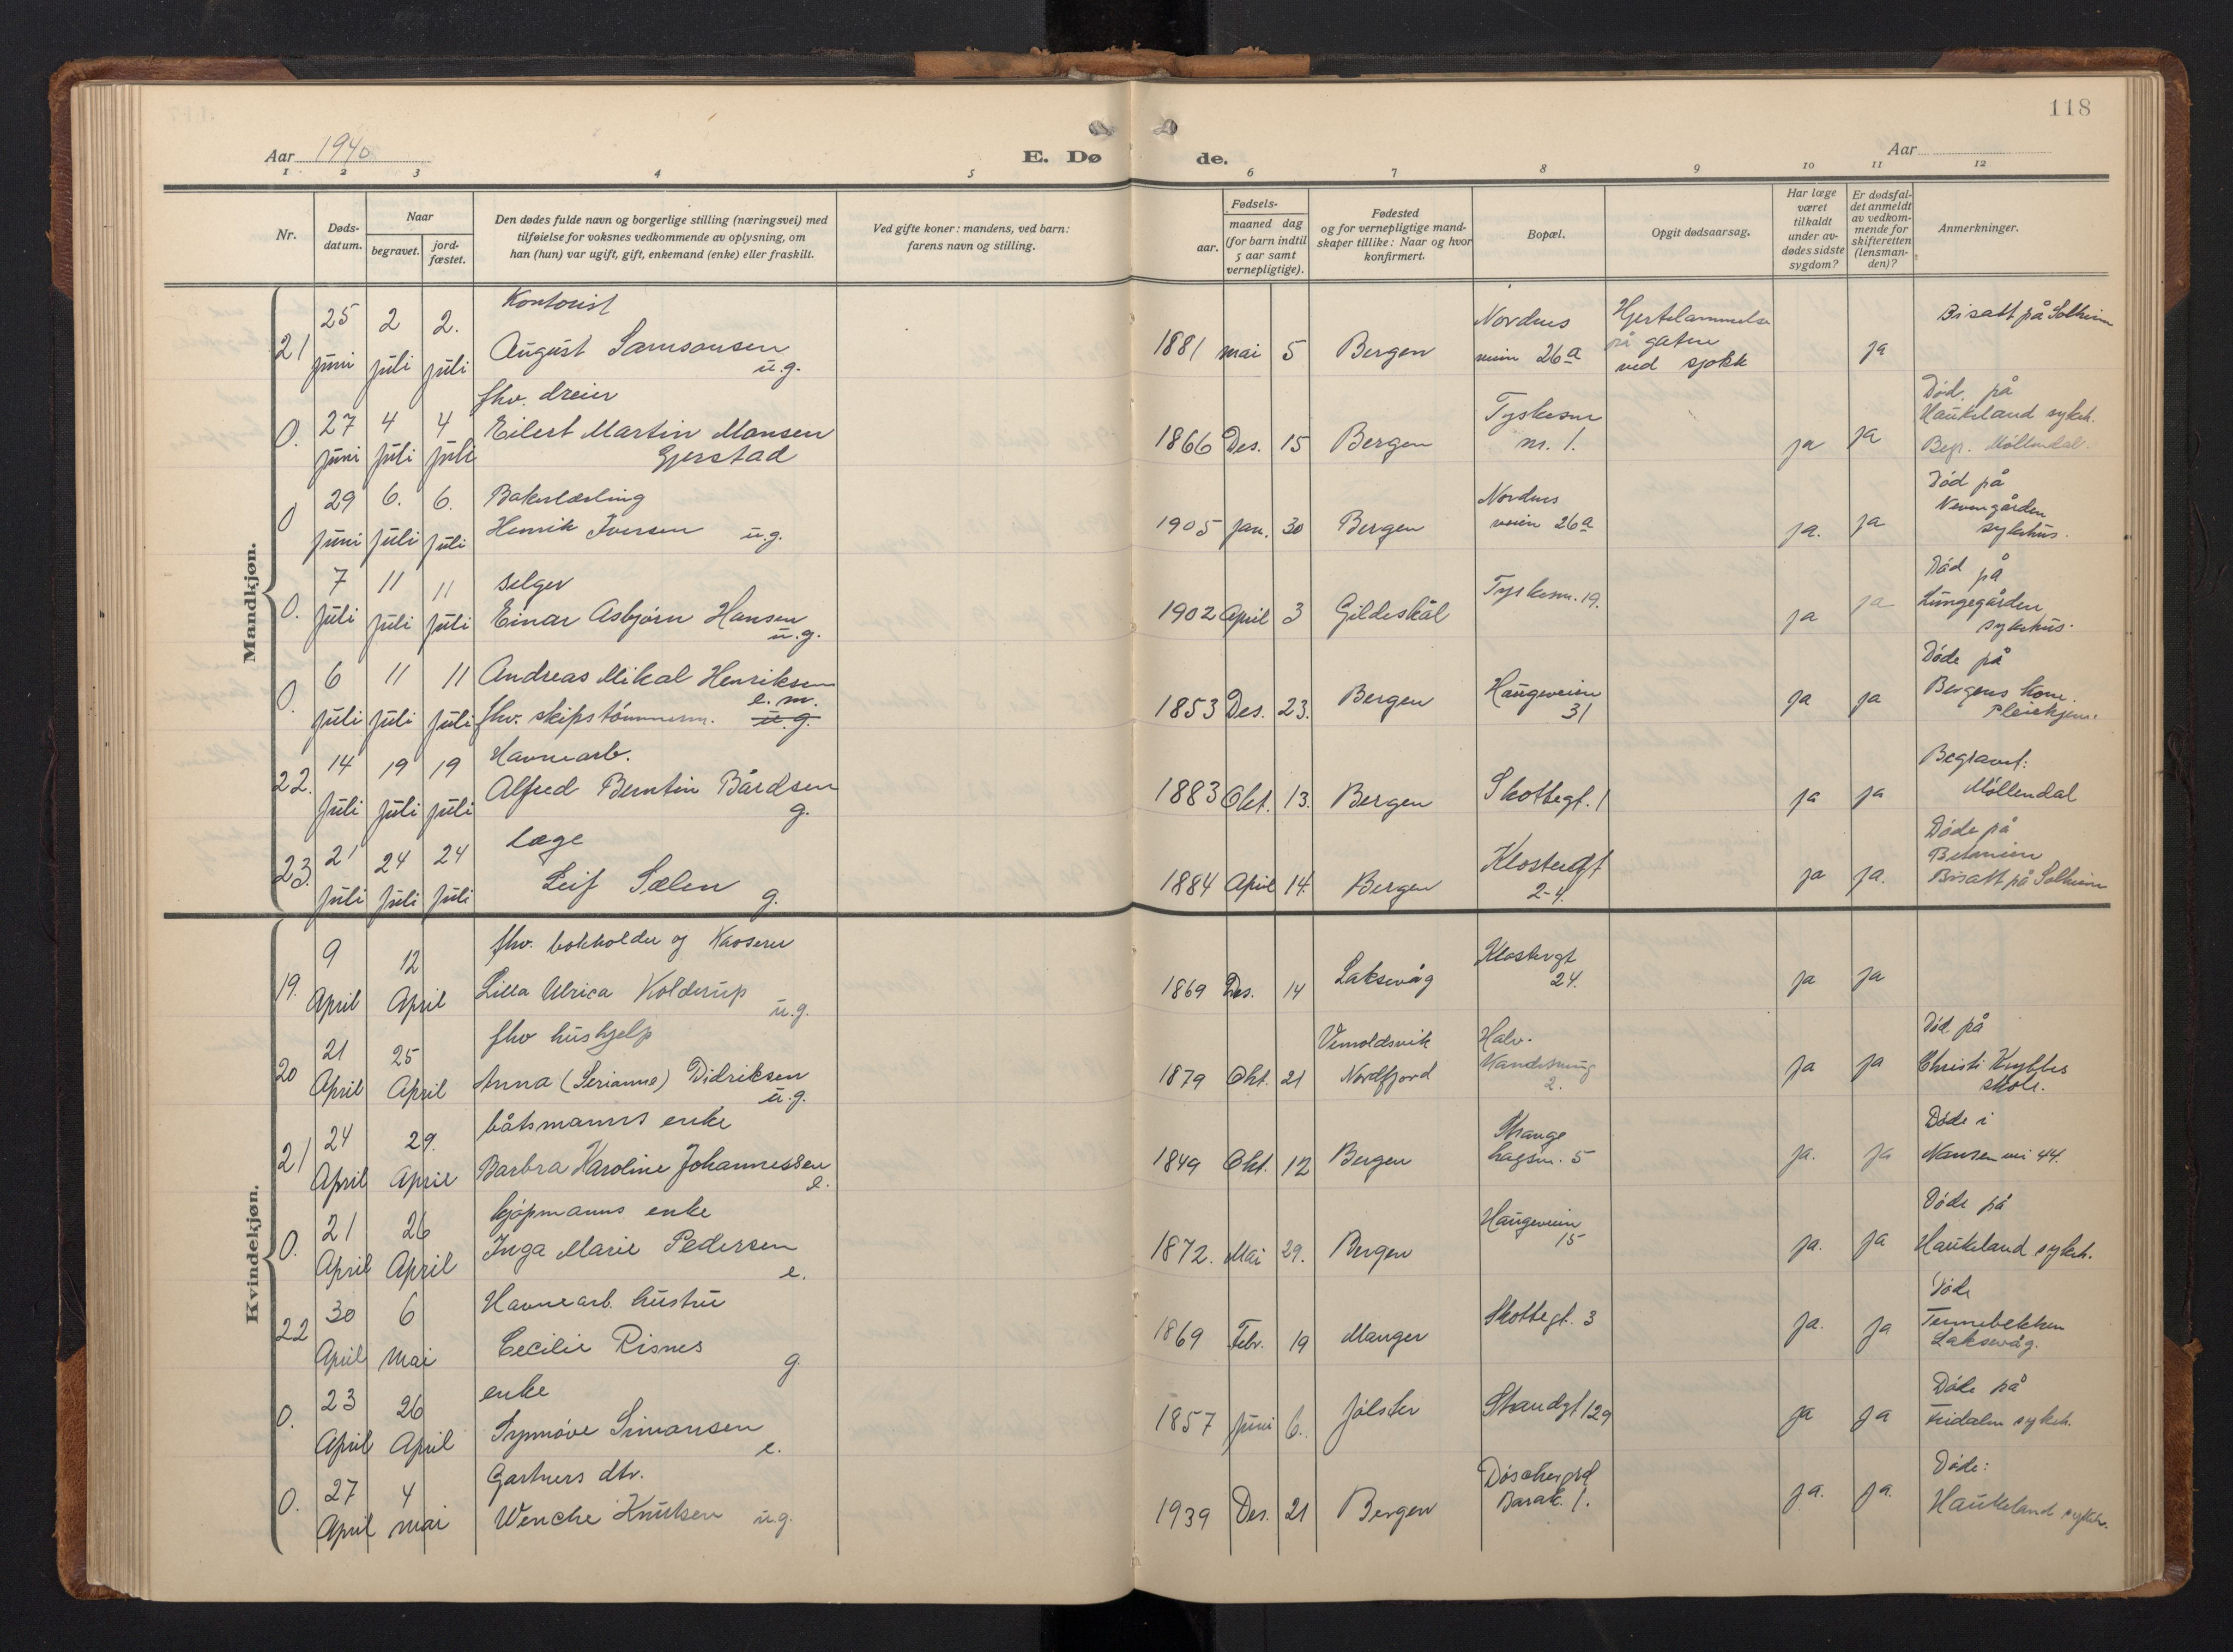 118
Aar 1940
E. Dø
de.
Aar
1 2 3 4 5 6 7 8 9 10 11 12
Nr.
Døds-
datum.
Naar
begravet.
jord-
fæstet.
Den dødes fulde navn og borgerlige stilling (næringsvei) med
tilføielse for voksnes vedkommende av oplysning, om
han (hun) var ugift, gift, enkemand (enke) eller fraskilt.
Ved gifte koner: mandens, ved barn:
farens navn og stilling.
Fødsels-
aar.
maaned dag
(for barn indtil
5 aar samt
vernepligtige).
Fødested
og for vernepligtige mand-
skaper tillike: Naar og hvor
konfirmert.
Bopæl.
Opgit dødsaarsag.
Har læge
været
tilkaldt
under av-
dødes sidste
sygdom?
Er dødsfal-
det anmeldt
av vedkom-
mende for
skifteretten
(lensman-
den)?
Anmerkninger.
Mandkjøn.
Kontorist
21 25 juni 2 juli 2. juli
August Samsonsen
u.g.
1881 mai 5 Bergen
Nordnes
veien 26a
Hjertelammelse
på gaten
ved sjokk
ja
Bisatt på Solheim
fhv. dreier
0. 27 juni 4 juli 4 juli
Eilert Martin Monsen
Gjerstad
1866 Des. 15 Bergen
Tyskesm
nr. 1.
ja ja
Død på
Haukeland sykeh.
Begr. Møllendal.
0 29 juni 6. juli 6. juli
Bakerlærling
Henrik Iversen u.g.
1905 jan. 30 Bergen
Nordnes
veien 26a
ja. ja
Død på
Nevengården
sykehus.
0. 7 juli 11 juli 11 juli
selger
Einar Asbjørn Hansen
u.g.
1902 April 3 Gildeskål
Tyskesm. 19.
ja ja
Død på
Lungegården
sykehus.
0. 6 juli 11 juli 11 juli
Andreas Mikal Henriksen
e.m.
fhv. skipstømmerm. u.g.
1853 Des. 23. Bergen
Haugeveien
31
ja ja
Døde på
Bergens kom.
Pleiehjem.
22. 14 juli 19 juli 19 juli
Havnearb.
Alfred Berntin Bårdsen
g.
1883 Okt. 13. Bergen
Skottegt. 1
ja ja
Begravet:
Møllendal
23. 21 juli 24 juli 24 juli
læge
Leif Sælen
g.
1884 April 14. Bergen
Klostergt
2-4.
ja ja.
Døde på
Betanien
Bisatt på Solheim
Kvindekjøn.
19. 9 April 12 April
fhv. bokholder og Kasserer
Lilla Ulrica Kolderup
u.g.
1869 Des. 14 Laksevåg
Klostergt
24.
ja ja
20 21 April 25 April
fhv hushjelp
Anna (Serianne) Didriksen
u.g.
1879 Okt. 21
Vemoldsvik
Nordfjord
Halv.
2.
ja ja
Død på
Christi Krybbes
skole.
21 24 April 29. April
båtsmanns enke
Barbra Karoline Johannessen
e.
1849 Okt. 12 Bergen
Strange
hagsm. 5
ja. ja
Døde i
Nansen vei 44.
0. 21 April 26 April
kjøpmanns enke
Inga Marie Pedersen
e.
1872. Mai 29. Bergen
Haugeveien
15
ja. ja
Døde på
Haukeland sykeh.
22 30 April 6 mai
Havnearb. hustru
Cecilie Risnes
g.
1869 Febr. 19 Manger
Skottegt. 3
ja. ja
Døde
Tennebekken
Laksevåg.
0. 23 April 26 April
enke
Synnøve Simonsen
e.
1857 juni 6. Jølster
Strandgt 129
ja ja
Døde på
Fridalen sykeh.
0. 27 April 4 mai
Gartners dtr.
Wenche Knutsen u.g.
1939 Des. 21 Bergen
Døschergrd
Barak. 1.
ja. ja.
Døde:
Haukeland sykeh.